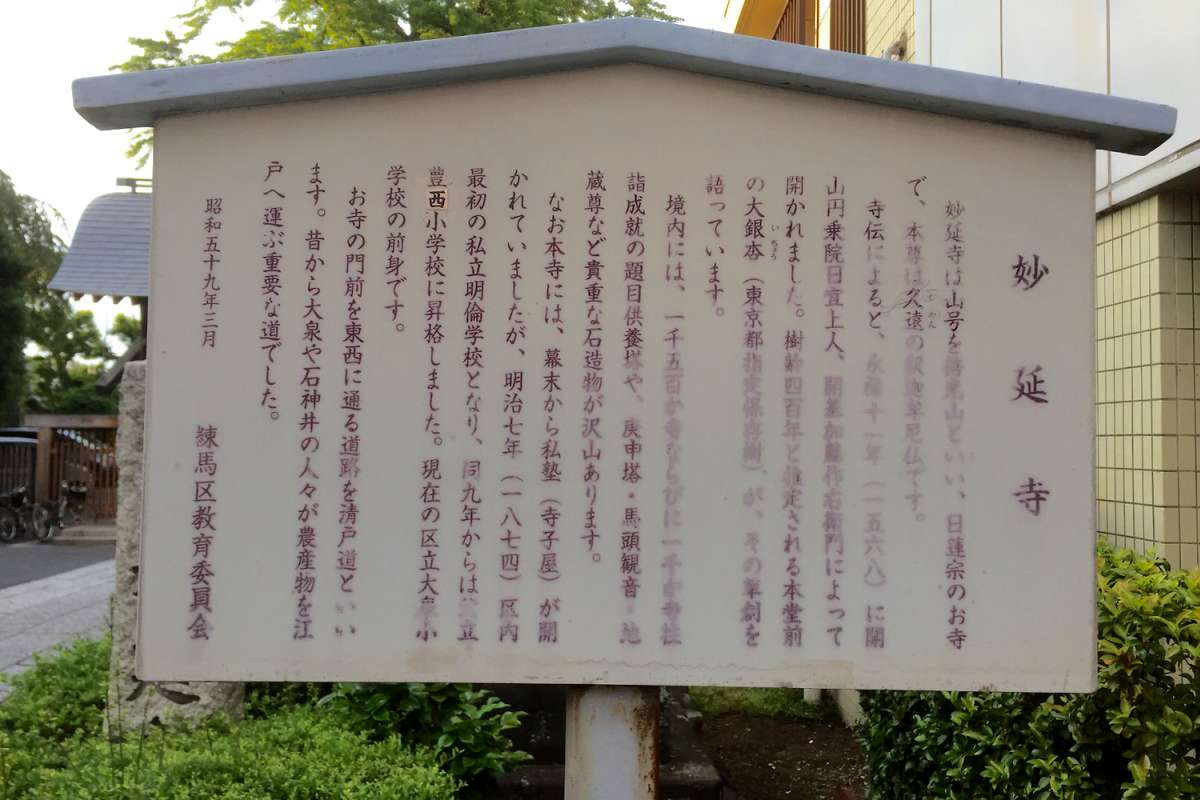 妙延寺
妙延寺は山号を倍光山といい、日蓮宗のお寺
で、本尊は久遠の釈迦牟尼仏です。
くおん
寺伝によると、永禄十一年（一五六八）に開
山円乗院日宣上人、開基加藤作右衛門によって
開かれました。樹齢四百年と推定される本堂前
の大銀杏（東京都指定保存樹）が、その草創を
いちょう
語っています。
境内には、一千五百か寺ならびに一千か寺社
詣成就の題目供養塔や、庚申塔・馬頭観音・地
蔵尊など貴重な石造物が沢山あります。
なお本寺には、幕末から私塾（寺子屋）が開
かれていましたが、明治七年（一八七四）区内
最初の私立明倫学校となり、同九年からは公立
豊西小学校に昇格しました。現在の区立大泉小
学校の前身です。
お寺の門前を東西に通る道路を清戸道といい
ます。昔から大泉や石神井の人々が農産物を江
戸へ運ぶ重要な道でした。
昭和五十九年三月
練馬区教育委員会